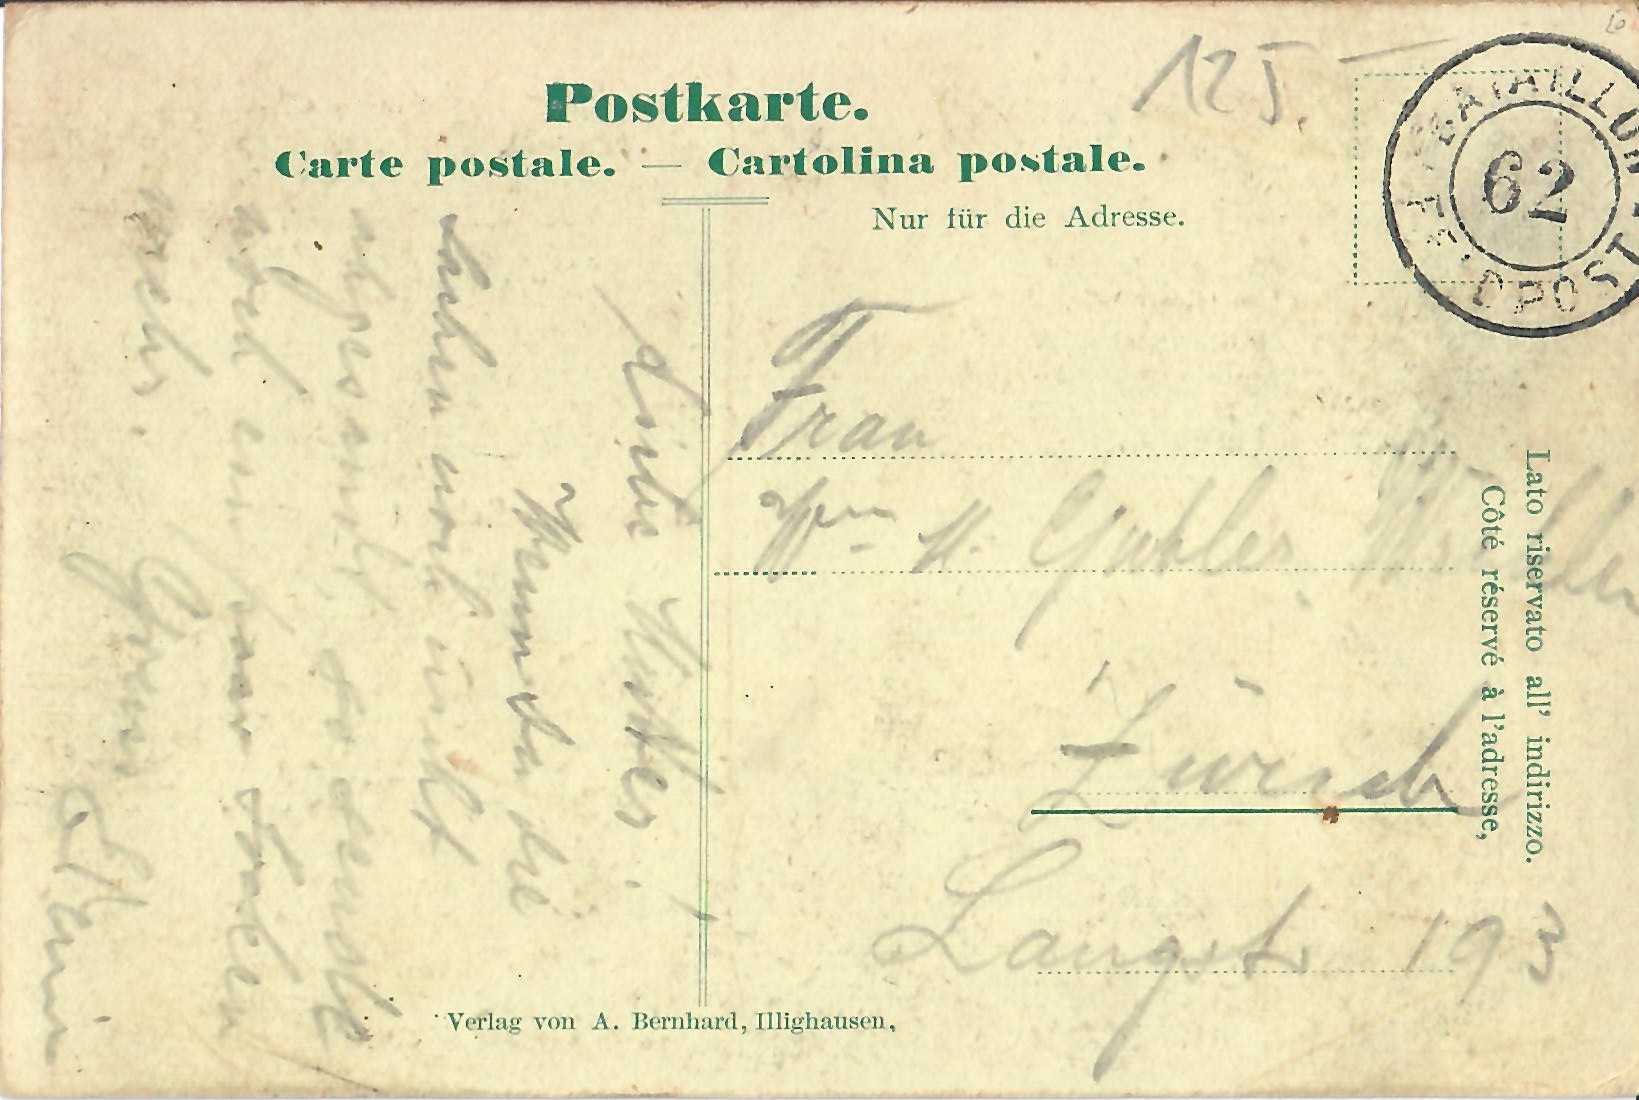 125.-
Postkarte.
Carte postale. — Cartolina postale.
Nur für die Adresse.
BATAILLON
62
FELDPOST
Frau
H. Gubler
Zürich
Langstr 193
Lato riservato all' indirizzo.
Côté réservé à l'adresse,
Wenn du die
Sachen noch nicht
abgesandt, so sende
noch ein paar Socken
mehr. Gruss
Verlag von A. Bernhard, Illighausen,